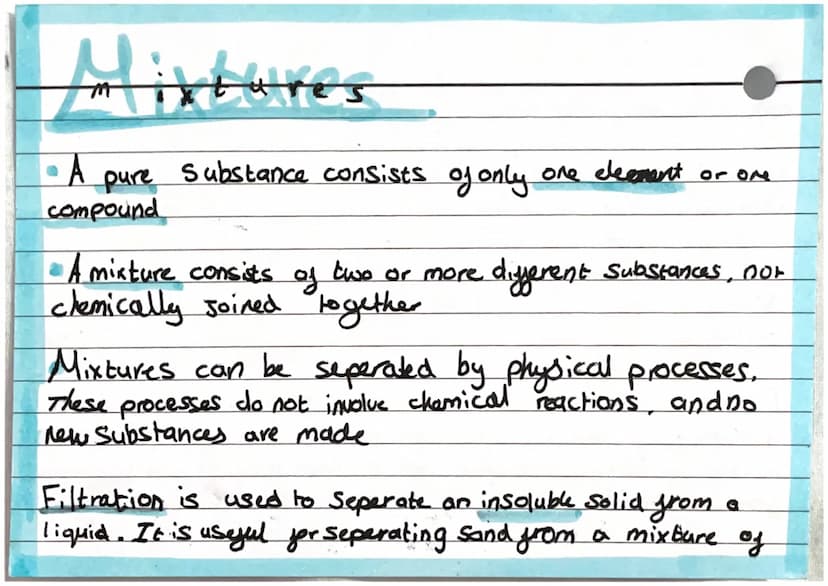 Mixtures
• A pure substance consists of only one element or one
compound
• A mixture consists of two or more different substances, not
chemically joined together
Mixtures can be seperated by physical processes.
These processes do not involve chemical reactions, and no
new substances are made
Filtration is used to seperate an insoluble solid from a
liquid. It is useful for seperating sand from a mixture of